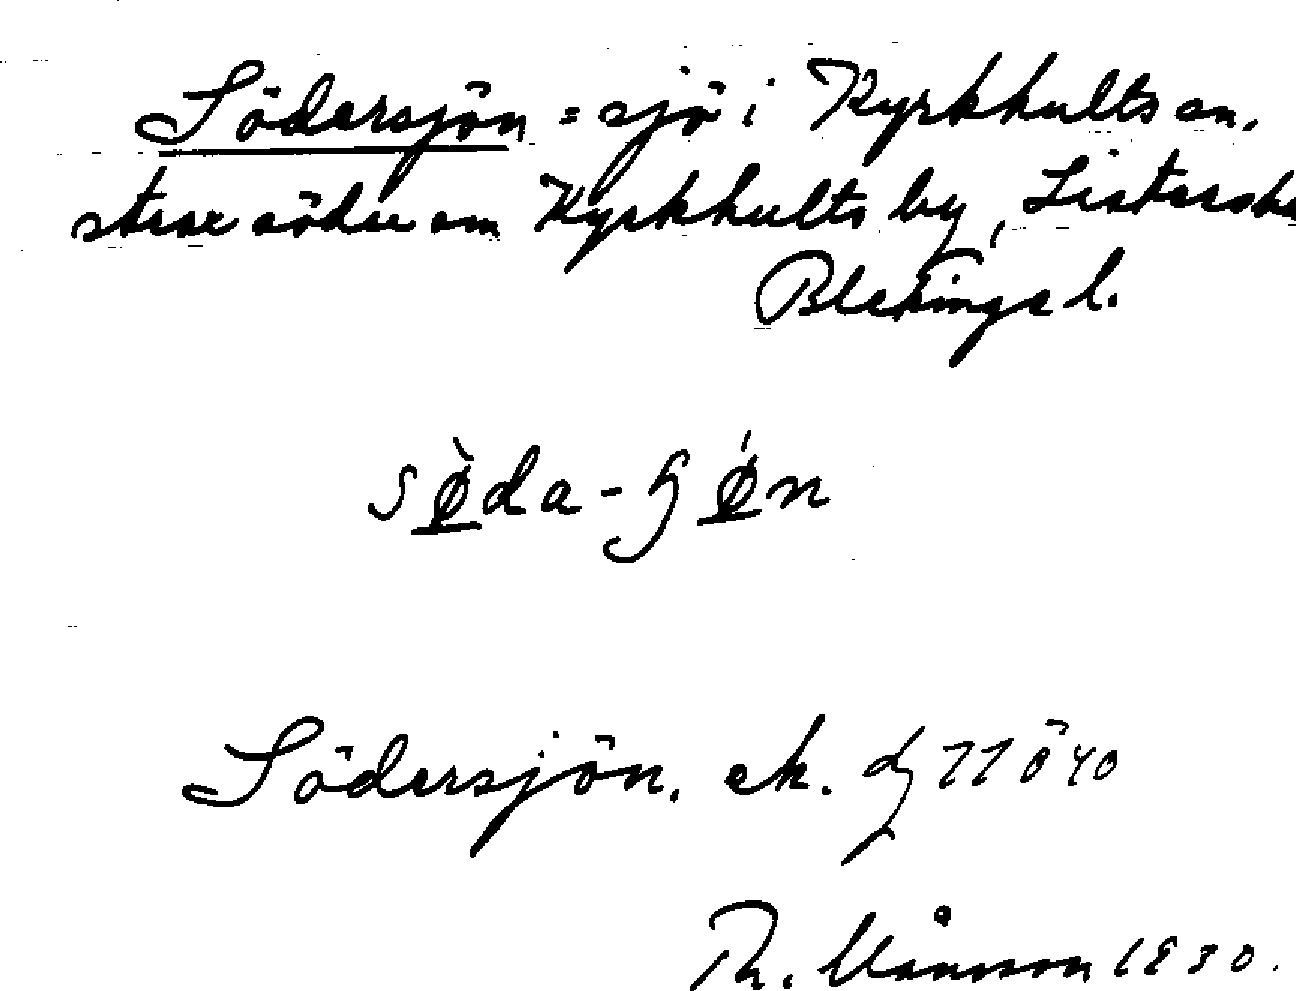 Södersjön = sjö i Kyrkhults sn.
strax söder om Kyrkhults by, Listers
Blekinge l.
sø̀da-ʃǿn
Södersjön. ek. 11 ö 40
Th. Månsson 1930.